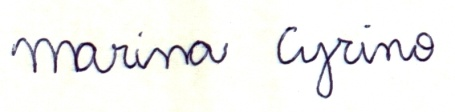 Marina Cyrino